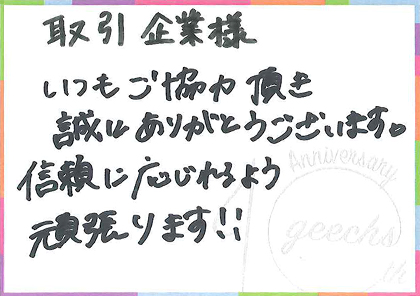 取引企業様
いつもご協力頂き
誠にありがとうございます。
信頼に応じれるよう
頑張ります!!
Anniversary
geechs
th